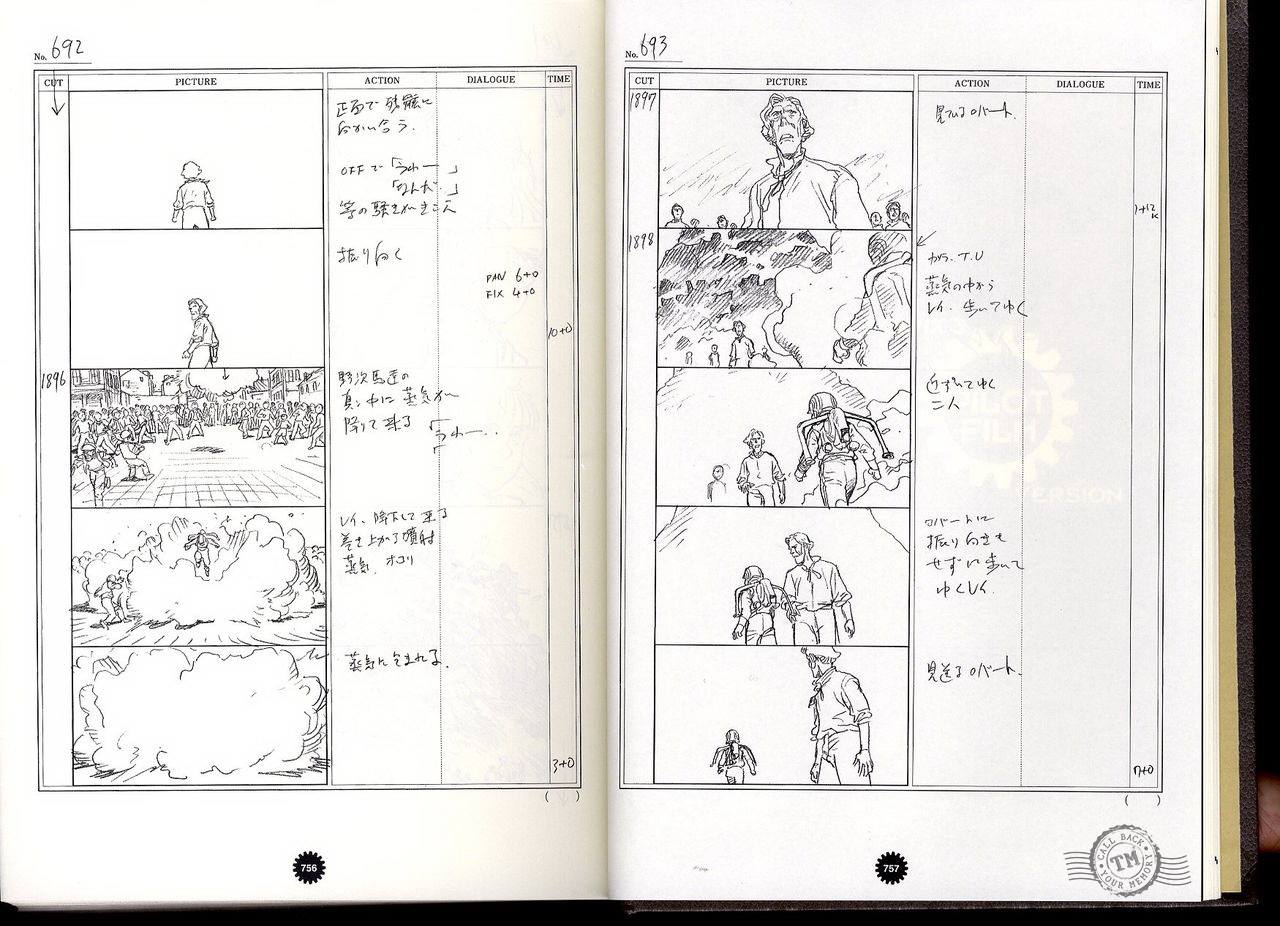 No. 692
CUT PICTURE ACTION DIALOGUE TIME
正面で残骸に
向かい合う.
OFFで「うわー」
「なんだ.」
等の騒ぎがきこえ
振り向く
PAN 6+0
FIX 4+0
10+0
1896
野次馬達の
真ン中に蒸気が
降りて来る
「うわー..
レイ、降下して来る
巻き上がる噴射
蒸気、ホコリ
蒸気に包まれる.
3+0
( )
756
No. 693
CUT PICTURE ACTION DIALOGUE TIME
1897
見ているロバート.
1+12
K
1898
から.T.U
蒸気の中から
レイ.歩いてゆく
近ずいてゆく
二人
ロバートに
振り向きも
せずに歩いて
ゆくレイ.
見送るロバート.
7+0
( )
757
PILOT
FILM
VERSION
CALL BACK
TM
YOUR MEMORY